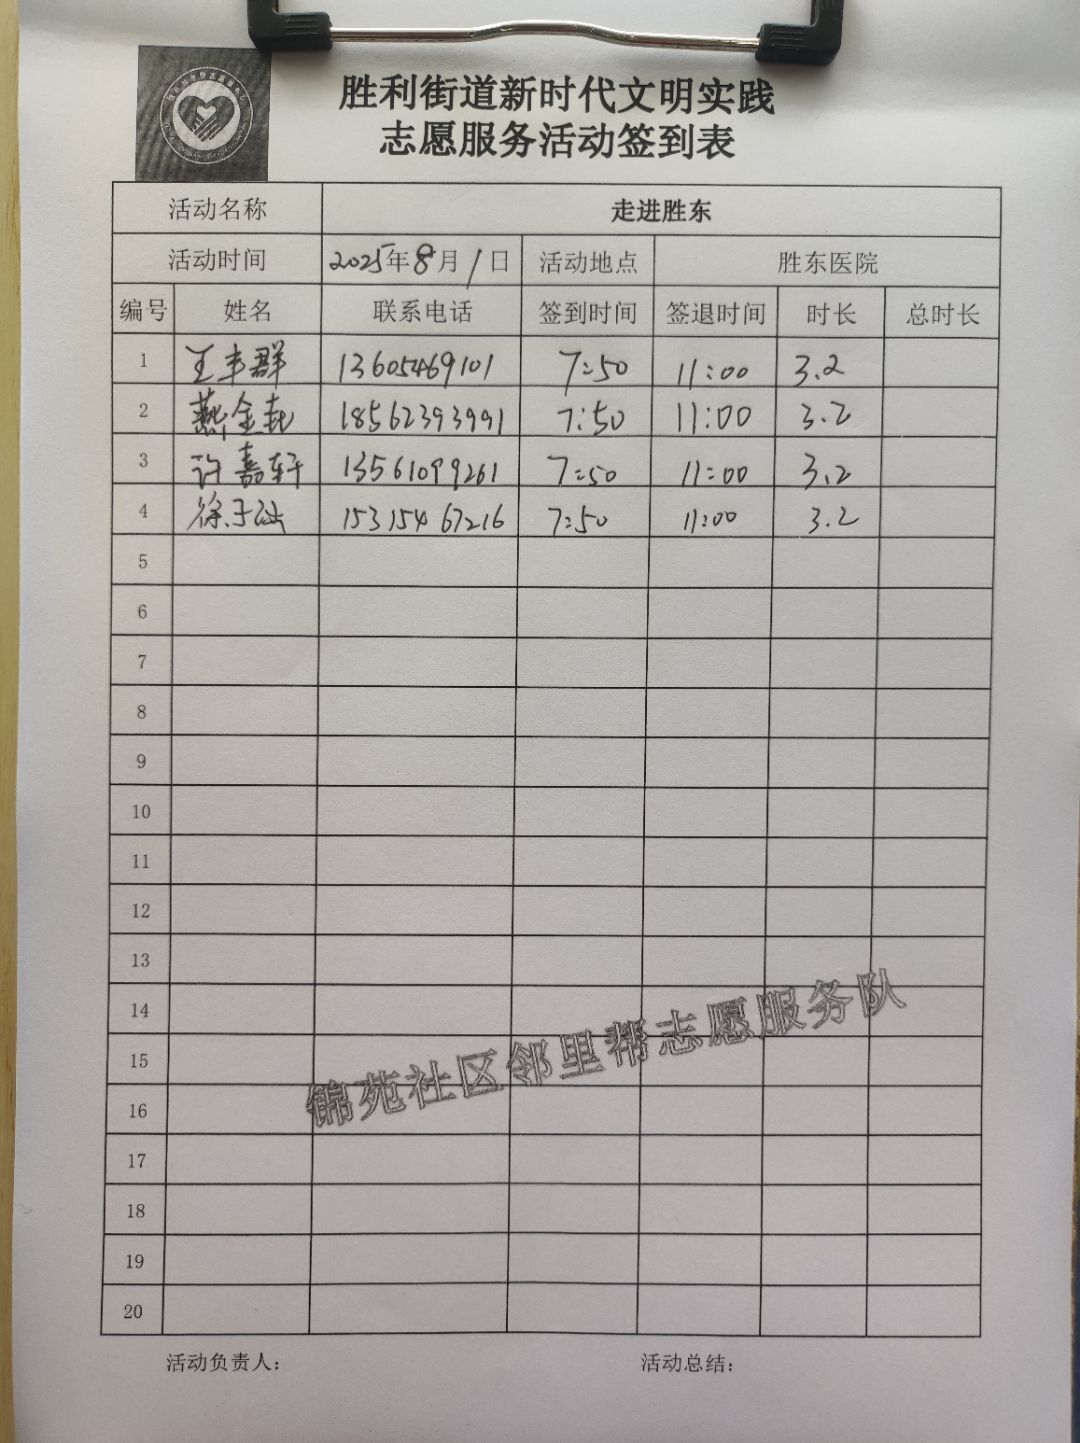 胜利街道新时代文明实践
志愿服务活动签到表
活动名称 走进胜东
活动时间 2025年8月1日 活动地点 胜东医院
编号 姓名 联系电话 签到时间 签退时间 时长 总时长
1 王丰群 13605469101 7:50 11:00 3.2
2 燕金 18562393991 7:50 11:00 3.2
3 许嘉轩 13561099261 7:50 11:00 3.2
4 徐子 15315467216 7:50 11:00 3.2
5
6
7
8
9
10
11
12
13
14
15
16
17
18
19
20
锦苑社区邻里帮志愿服务队
活动负责人: 活动总结: